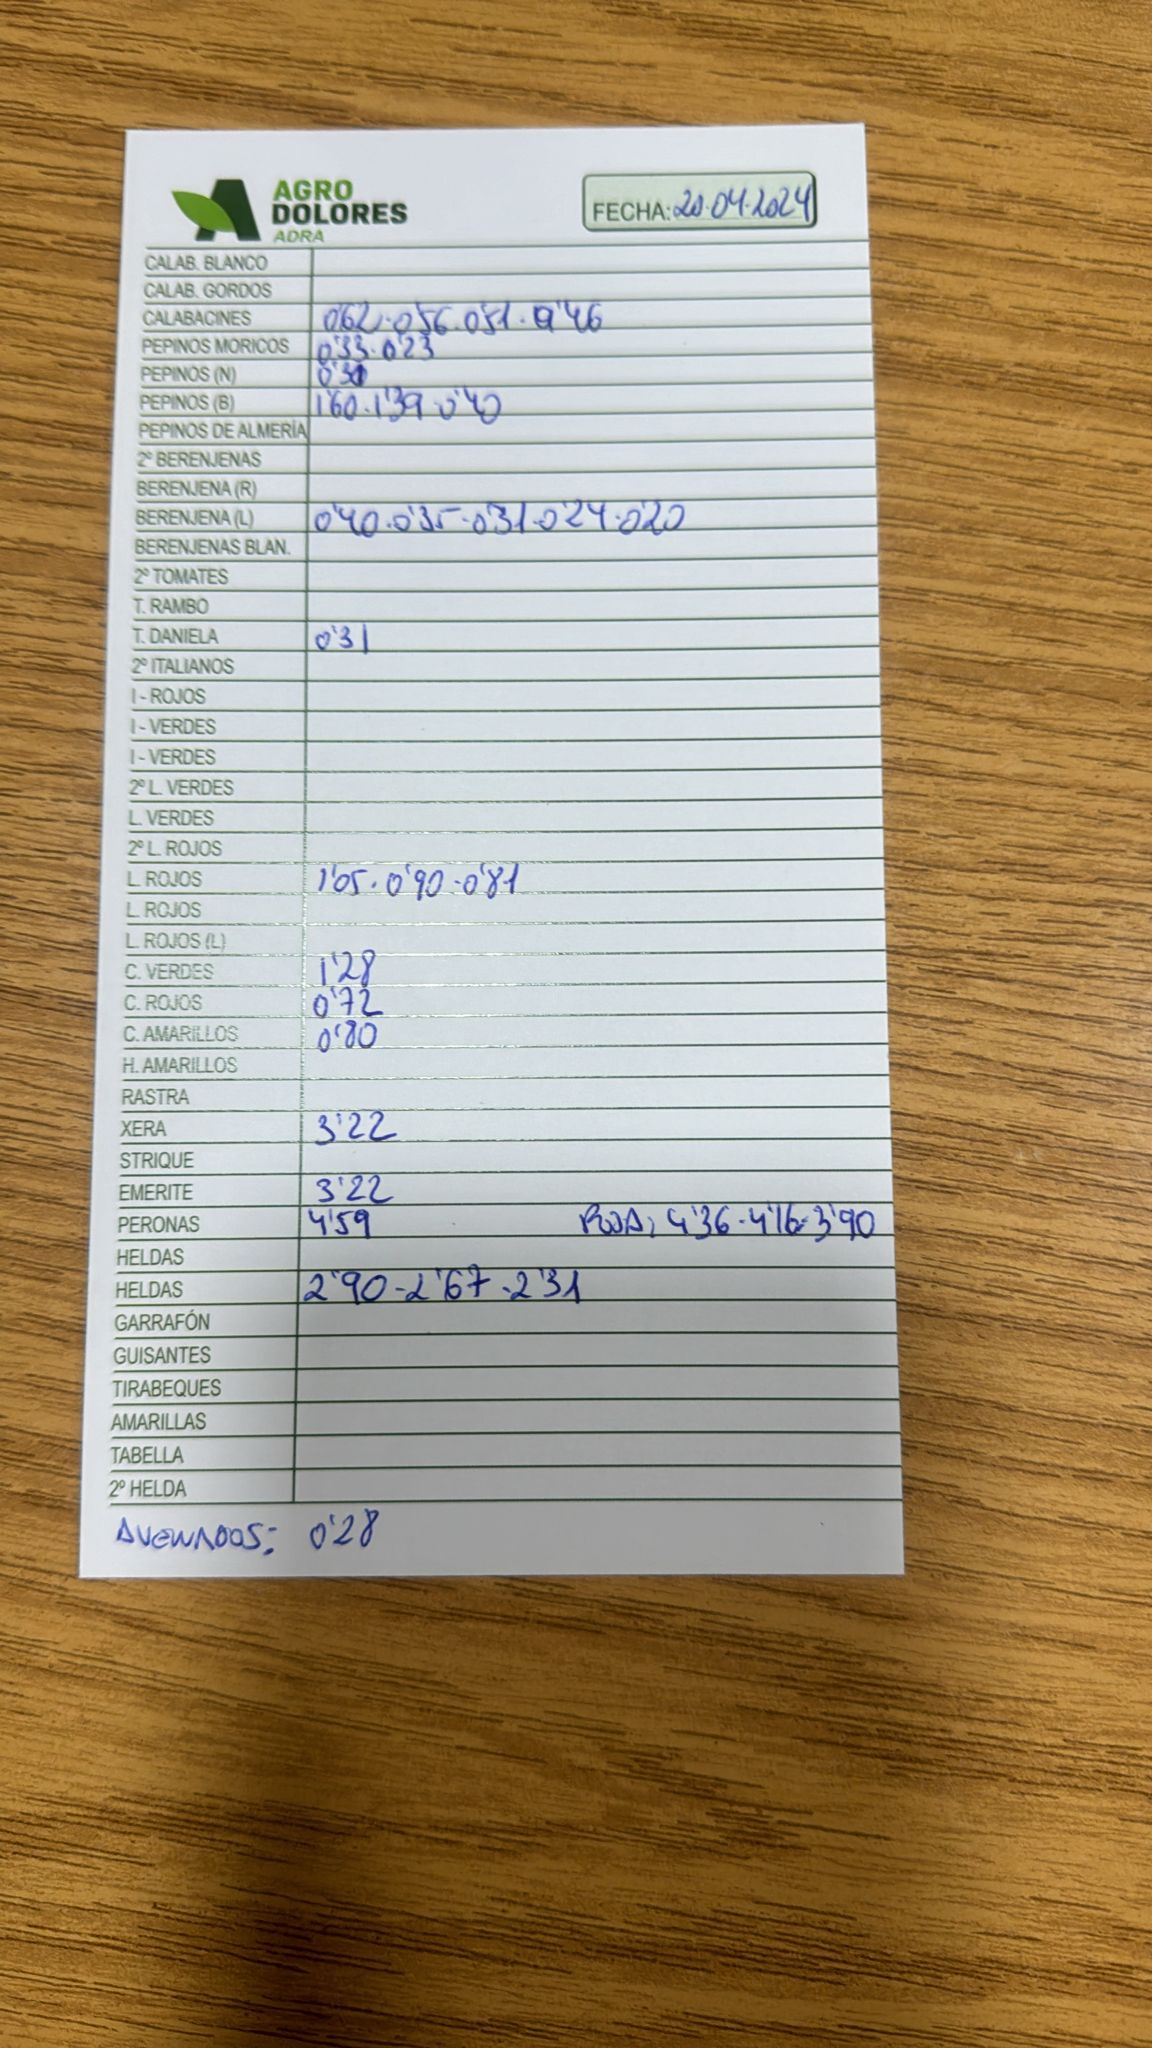 AGRO
DOLORES
ADRA
FECHA: 20.04.2024
CALAB. BLANCO
CALAB. GORDOS
CALABACINES 0'62.0'56.0'51.0'46
PEPINOS MORICOS 0'33.0'23
PEPINOS (N)
PEPINOS (B) 1'60.1'39.0'40
PEPINOS DE ALMERÍA
2º BERENJENAS
BERENJENA (R)
BERENJENA (L) 0'40.0'35.0'31.0'24.0'20
BERENJENAS BLAN.
2º TOMATES
T. RAMBO
T. DANIELA 0'31
2º ITALIANOS
I - ROJOS
I - VERDES
I - VERDES
2º L. VERDES
L. VERDES
2º L. ROJOS
L. ROJOS 1'05.0'90.0'81
L. ROJOS
L. ROJOS (L)
C. VERDES 1'28
C. ROJOS 0'72
C. AMARILLOS 0'80
H. AMARILLOS
RASTRA
XERA 3'22
STRIQUE
EMERITE 3'22
PERONAS 4'59 ROJA, 4'36.4'16.3'90
HELDAS
HELDAS 2'90-2'67.2'31
GARRAFÓN
GUISANTES
TIRABEQUES
AMARILLAS
TABELLA
2º HELDA
0'28